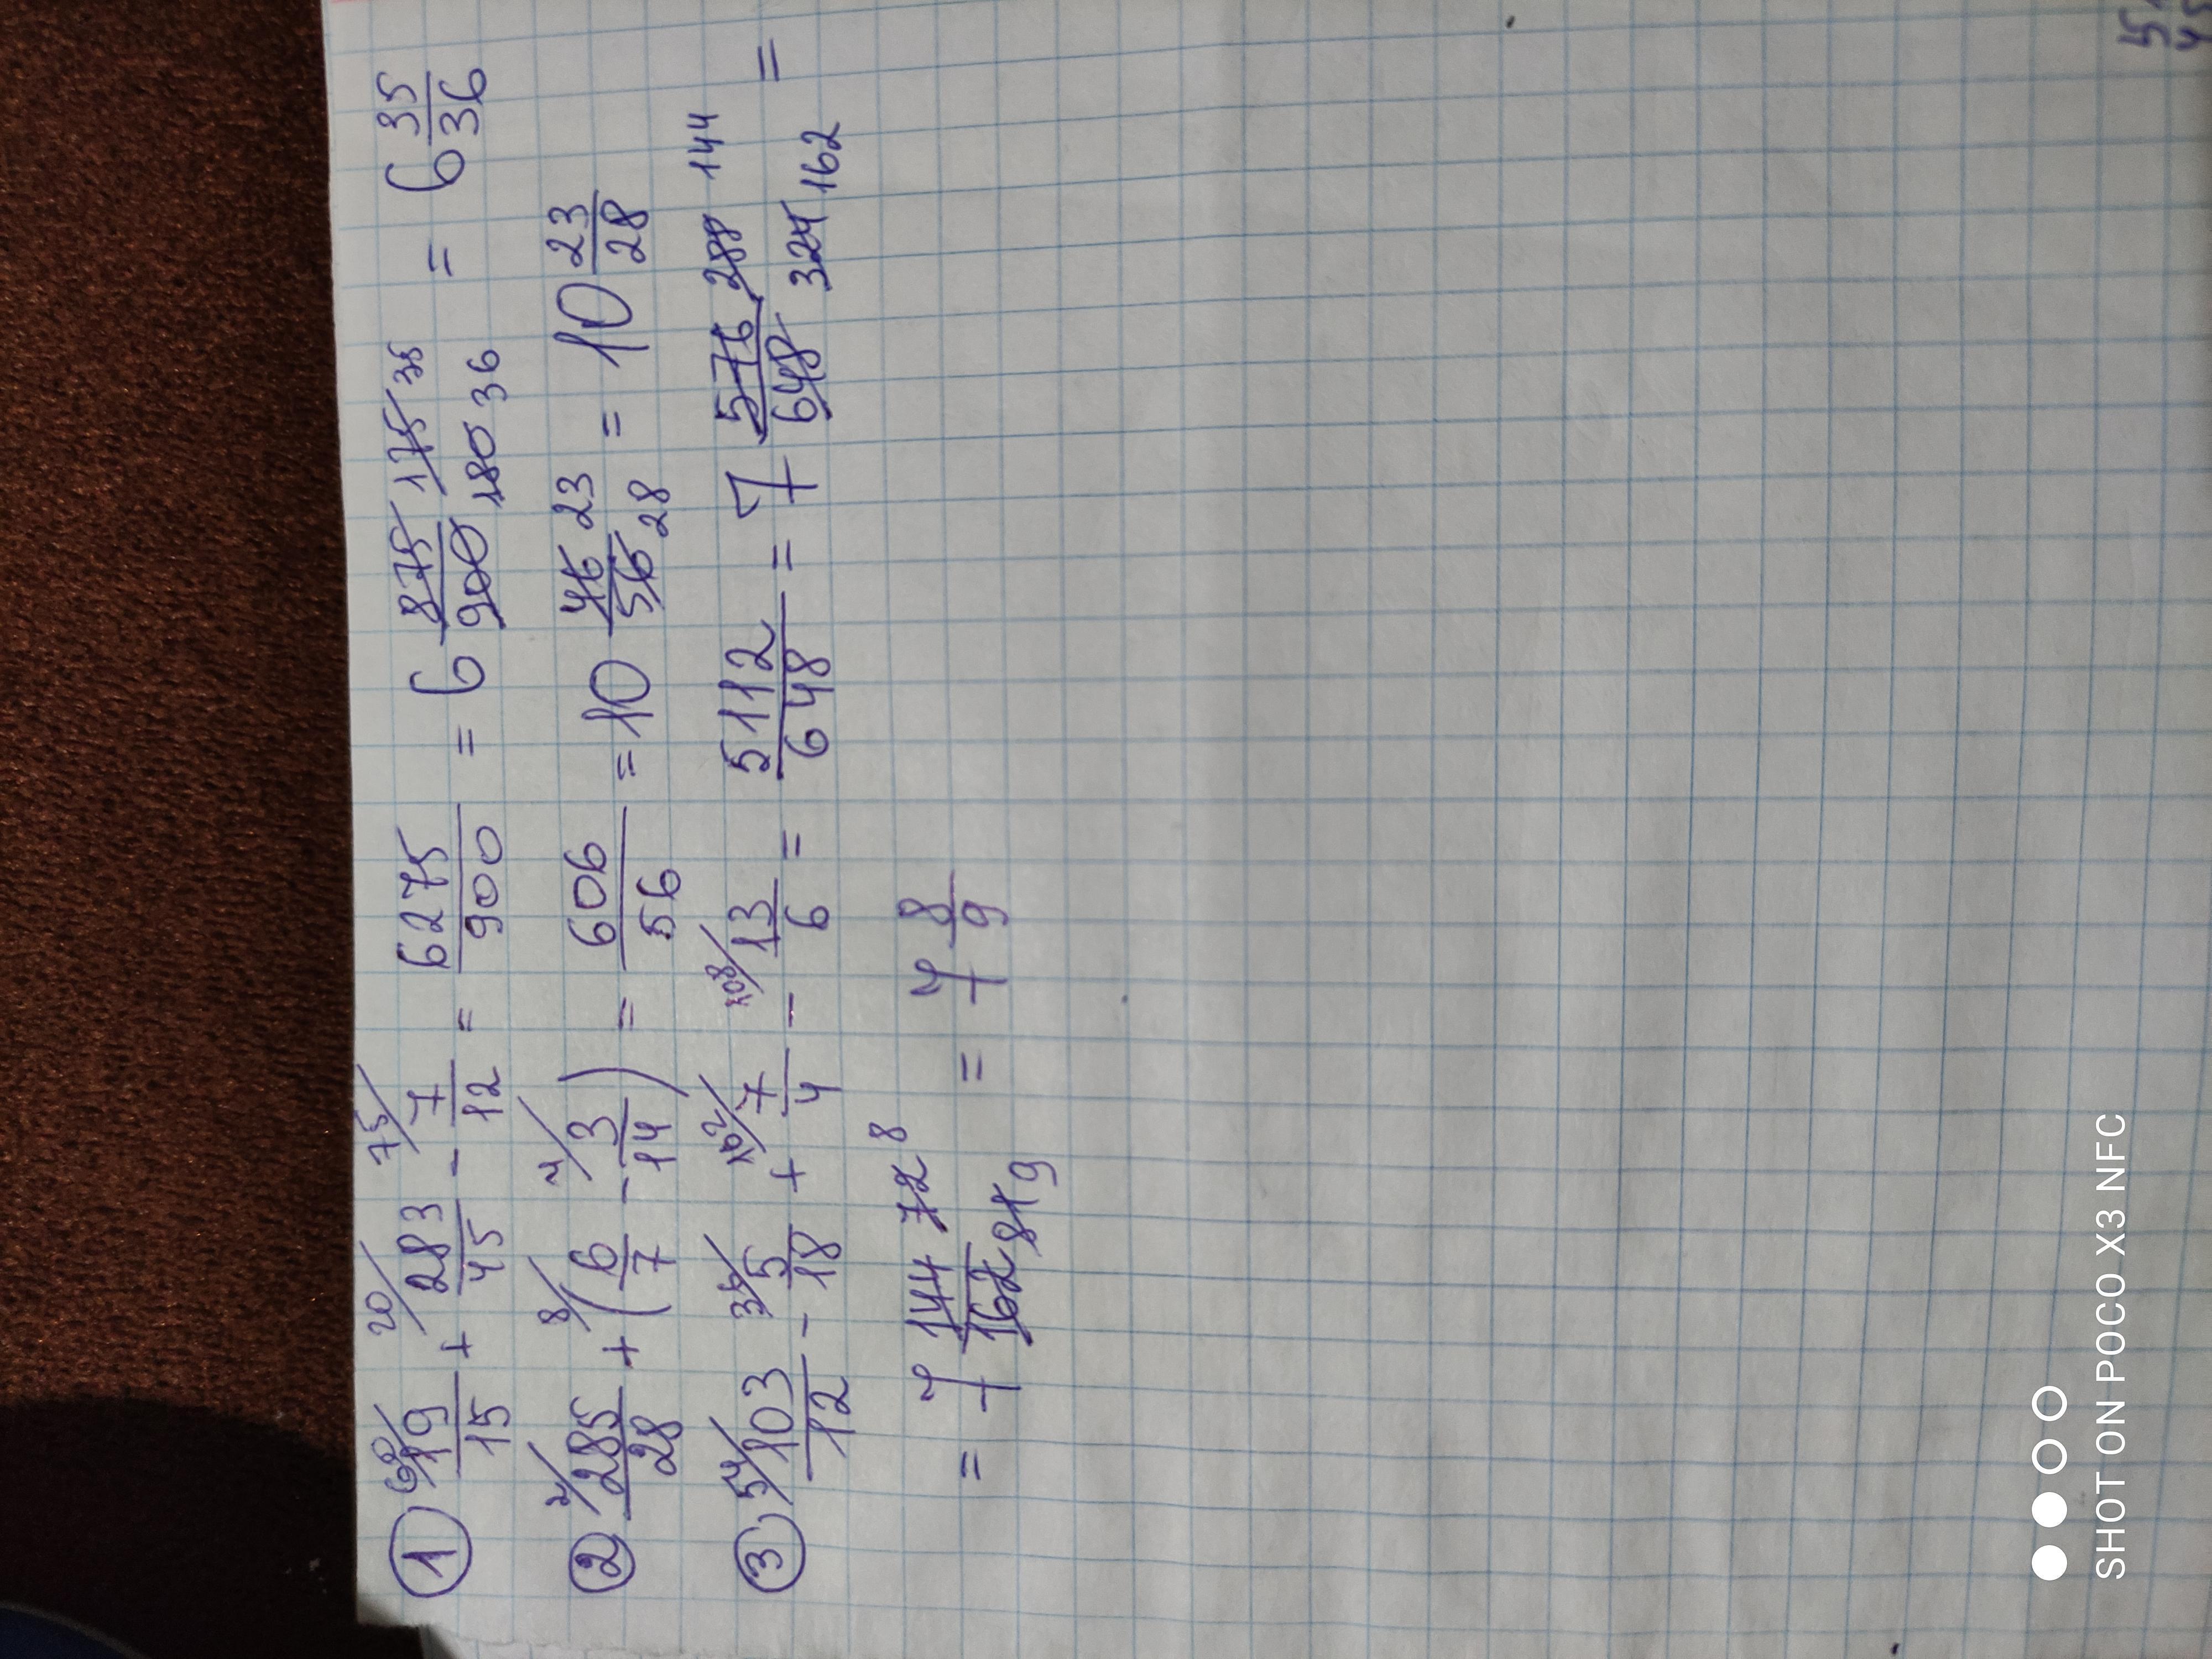 ① 60/ 19/15 + 20/ 283/45 - 75/ 7/12 = 6275/900 = 6 875/900 175/180 35/36 = 6 35/36
② 2/ 285/28 + 8/ (6/7 - 4/ 3/14) = 606/56 = 10 46/56 23/28 = 10 23/28
③ 54/ 103/12 - 36/ 5/18 + 162/ 7/4 - 108/ 13/6 = 5112/648 = 7 576/648 288/324 144/162 =
= 7 144/162 72/81 8/9 = 7 8/9
SHOT ON POCO X3 NFC